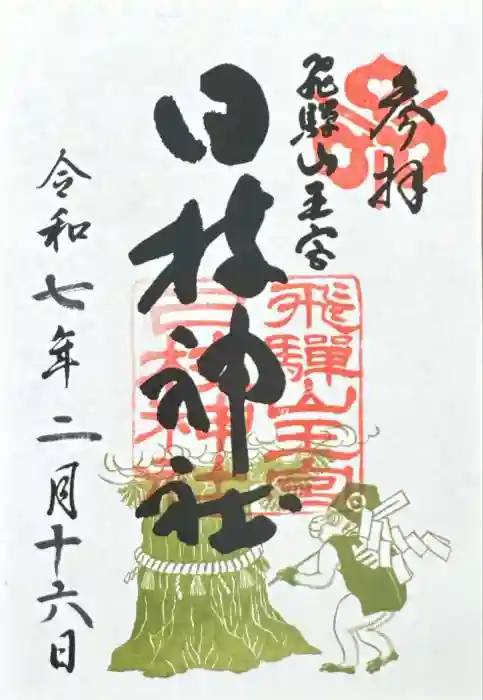 参拝
飛騨山王宮
日枝神社
飛驒山王宮
日枝神社
令和七年二月十六日